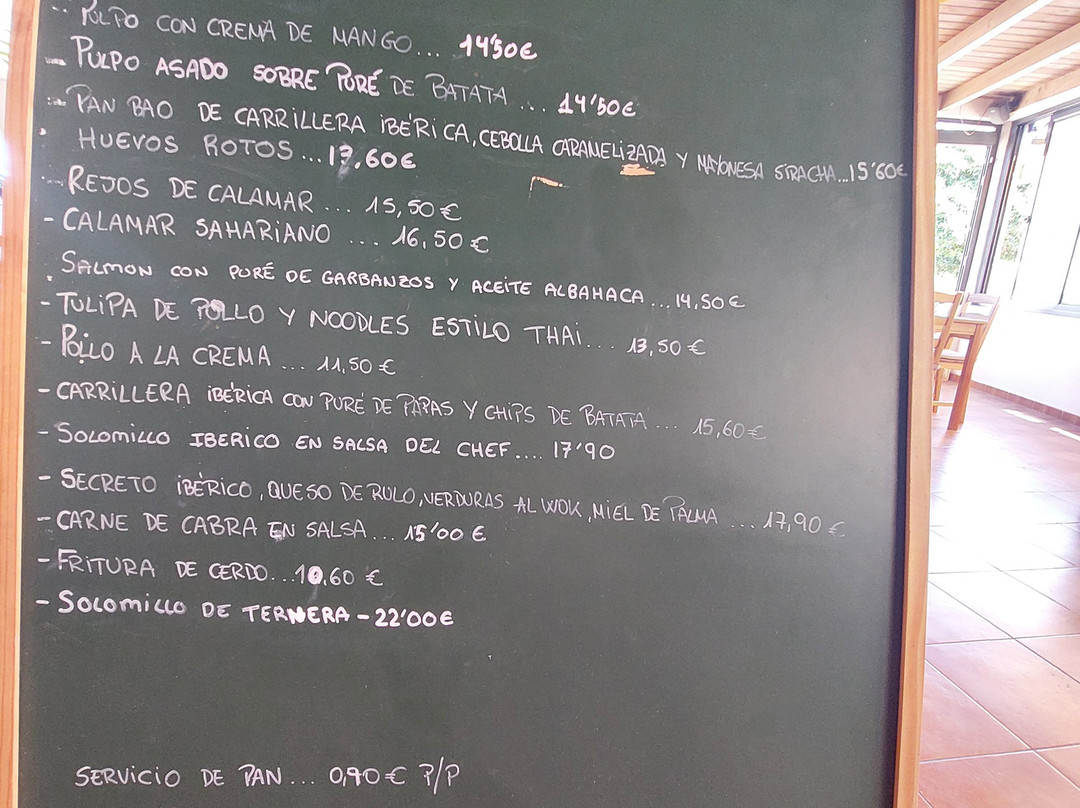 - PULPO CON CREMA DE MANGO... 14'50€
- PULPO ASADO SOBRE PURÉ DE BATATA... 14'50€
- PAN BAO DE CARRILLERA IBÉRICA, CEBOLLA CARAMELIZADA Y MAYONESA SIRACHA...15'60€
· HUEVOS ROTOS...13,60€
- REJOS DE CALAMAR... 15,50€
- CALAMAR SAHARIANO ... 16,50€
. SALMON CON PURÉ DE GARBANZOS Y ACEITE ALBAHACA...14,50€
- TULIPA DE POLLO Y NOODLES ESTILO THAI... 13,50€
- POLLO A LA CREMA ... 11,50€
- CARRILLERA IBÉRICA CON PURÉ DE PAPAS Y CHIPS DE BATATA ... 15,60€
- SOLOMILLO IBERICO EN SALSA DEL CHEF.... 17'90
- SECRETO IBÉRICO, QUESO DE RULO, VERDURAS AL WOK, MIEL DE PALMA ... 17,90€
- CARNE DE CABRA EN SALSA... 15'00€
- FRITURA DE CERDO...10,60€
- SOLOMILLO DE TERNERA - 22'00€
SERVICIO DE PAN... 0,90€ P/P